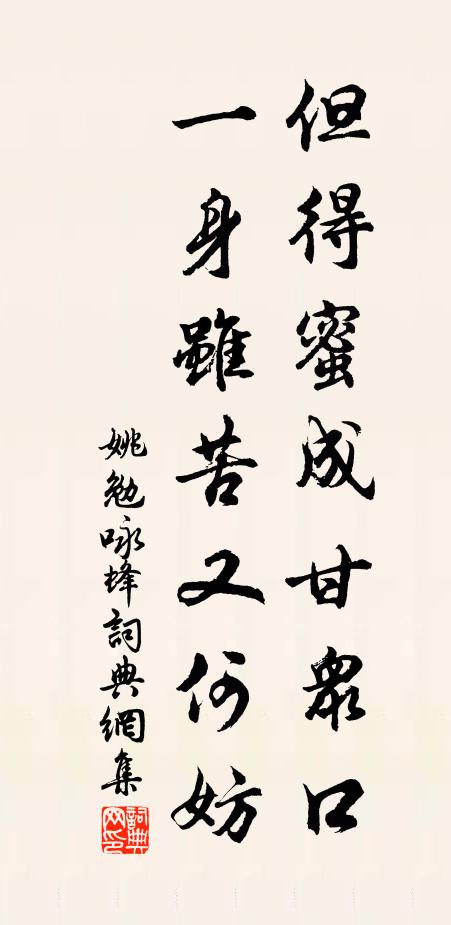 但得蜜成甘眾口
一身雖苦又何妨
姚勉咏蜂詞典網集
詞典
网印